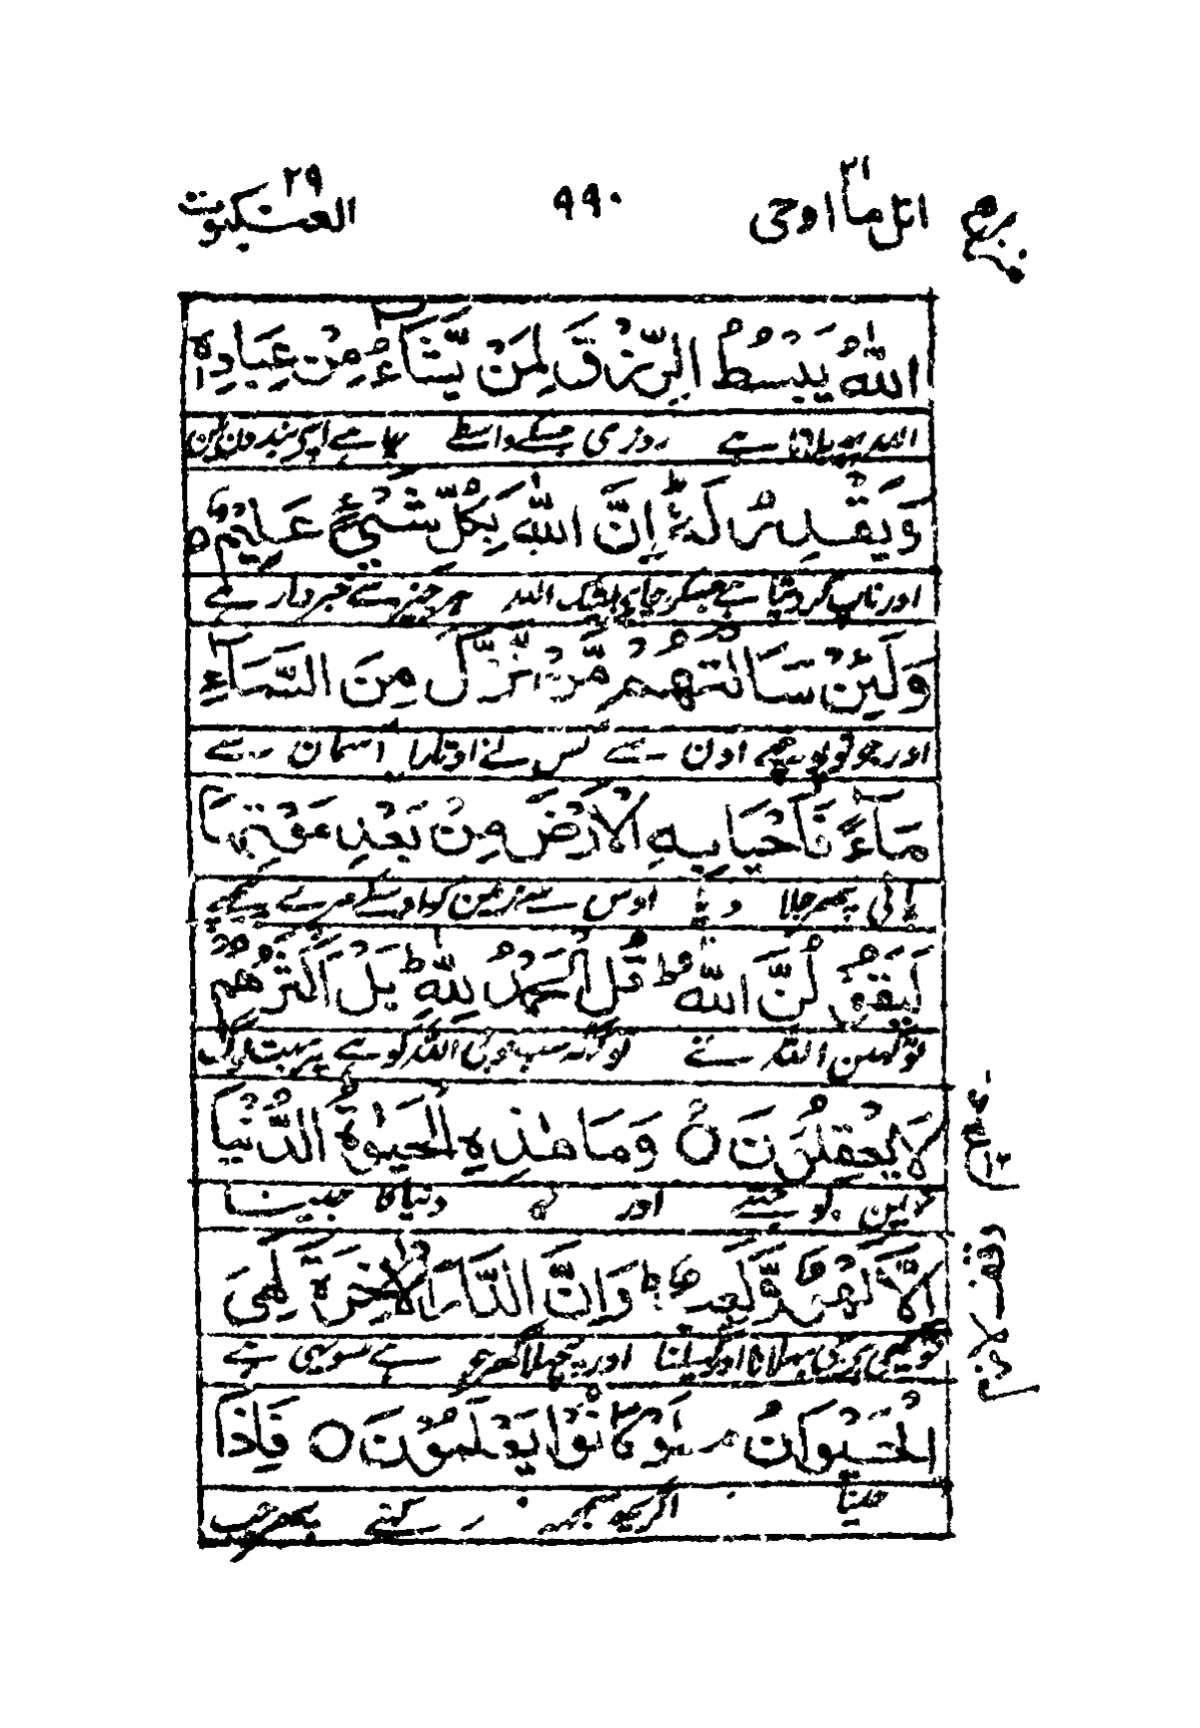 اتل ما اوحی ٢١
٩٩٠
العنکبوت ٢٩
اَللّٰهُ يَبْسُطُ الرِّزْقَ لِمَنْ يَّشَآءُ مِنْ عِبَادِهٖ
الله پھیلاتا ہے روزی جسکے واسطے چاہے اپنے بندون مین
وَيَقْدِرُ لَهٗ ؕ اِنَّ اللّٰهَ بِكُلِّ شَيْءٍ عَلِيْمٌ ○
اور ناپ کر دیتا ہے جسکو چاہے بیشک الله ہر چیز سے خبردار ہے
وَلَئِنْ سَاَلْتَهُمْ مَّنْ نَّزَّلَ مِنَ السَّمَآءِ
اور جو تو پوچھے اون سے کس نے اوتارا آسمان سے
مَآءً فَاَحْيَا بِهِ الْاَرْضَ مِنْۢ بَعْدِ مَوْتِهَا
پانی پھر جلا دیا اوس سے زمین کو اوسکے مرے پیچھے
لَيَقُوْلُنَّ اللّٰهُ ؕ قُلِ الْحَمْدُ لِلّٰهِ ؕ بَلْ اَكْثَرُهُمْ
تو کہین الله نے تو کہہ سب خوبی الله کو ہے پر بہت لوگ
لَا يَعْقِلُوْنَ ○ وَمَا هٰذِهِ الْحَيٰوةُ الدُّنْيَا
نہین بوجھتے اور یہ دنیا کا جینا
اِلَّا لَهْوٌ وَّلَعِبٌ ؕ وَاِنَّ الدَّارَ الْاٰخِرَةَ لَهِيَ
تو یہی ہے جی بہلانا اور کھیلنا اور پچھلا گھر جو ہے سو یہی ہے
الْحَيَوَانُ ۘ لَوْ كَانُوْا يَعْلَمُوْنَ ○ فَاِذَا
جینا اگر یہ سمجھ رکھتے پھر جب
وقف لازم